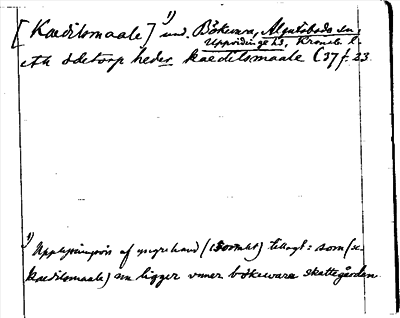 [Kaedilsmaale] 1) und. Bökevara, Algutsboda sn,
Uppvidinge hd, Kronob. l.
ett ödetorp heder kaedilsmaale (37 f. 23
1) Upplysningsvis af yngre hand (1500-talet) tillagt: som (sc.
Kaedilsmaale) sm ligger vnner bökevara skattegården